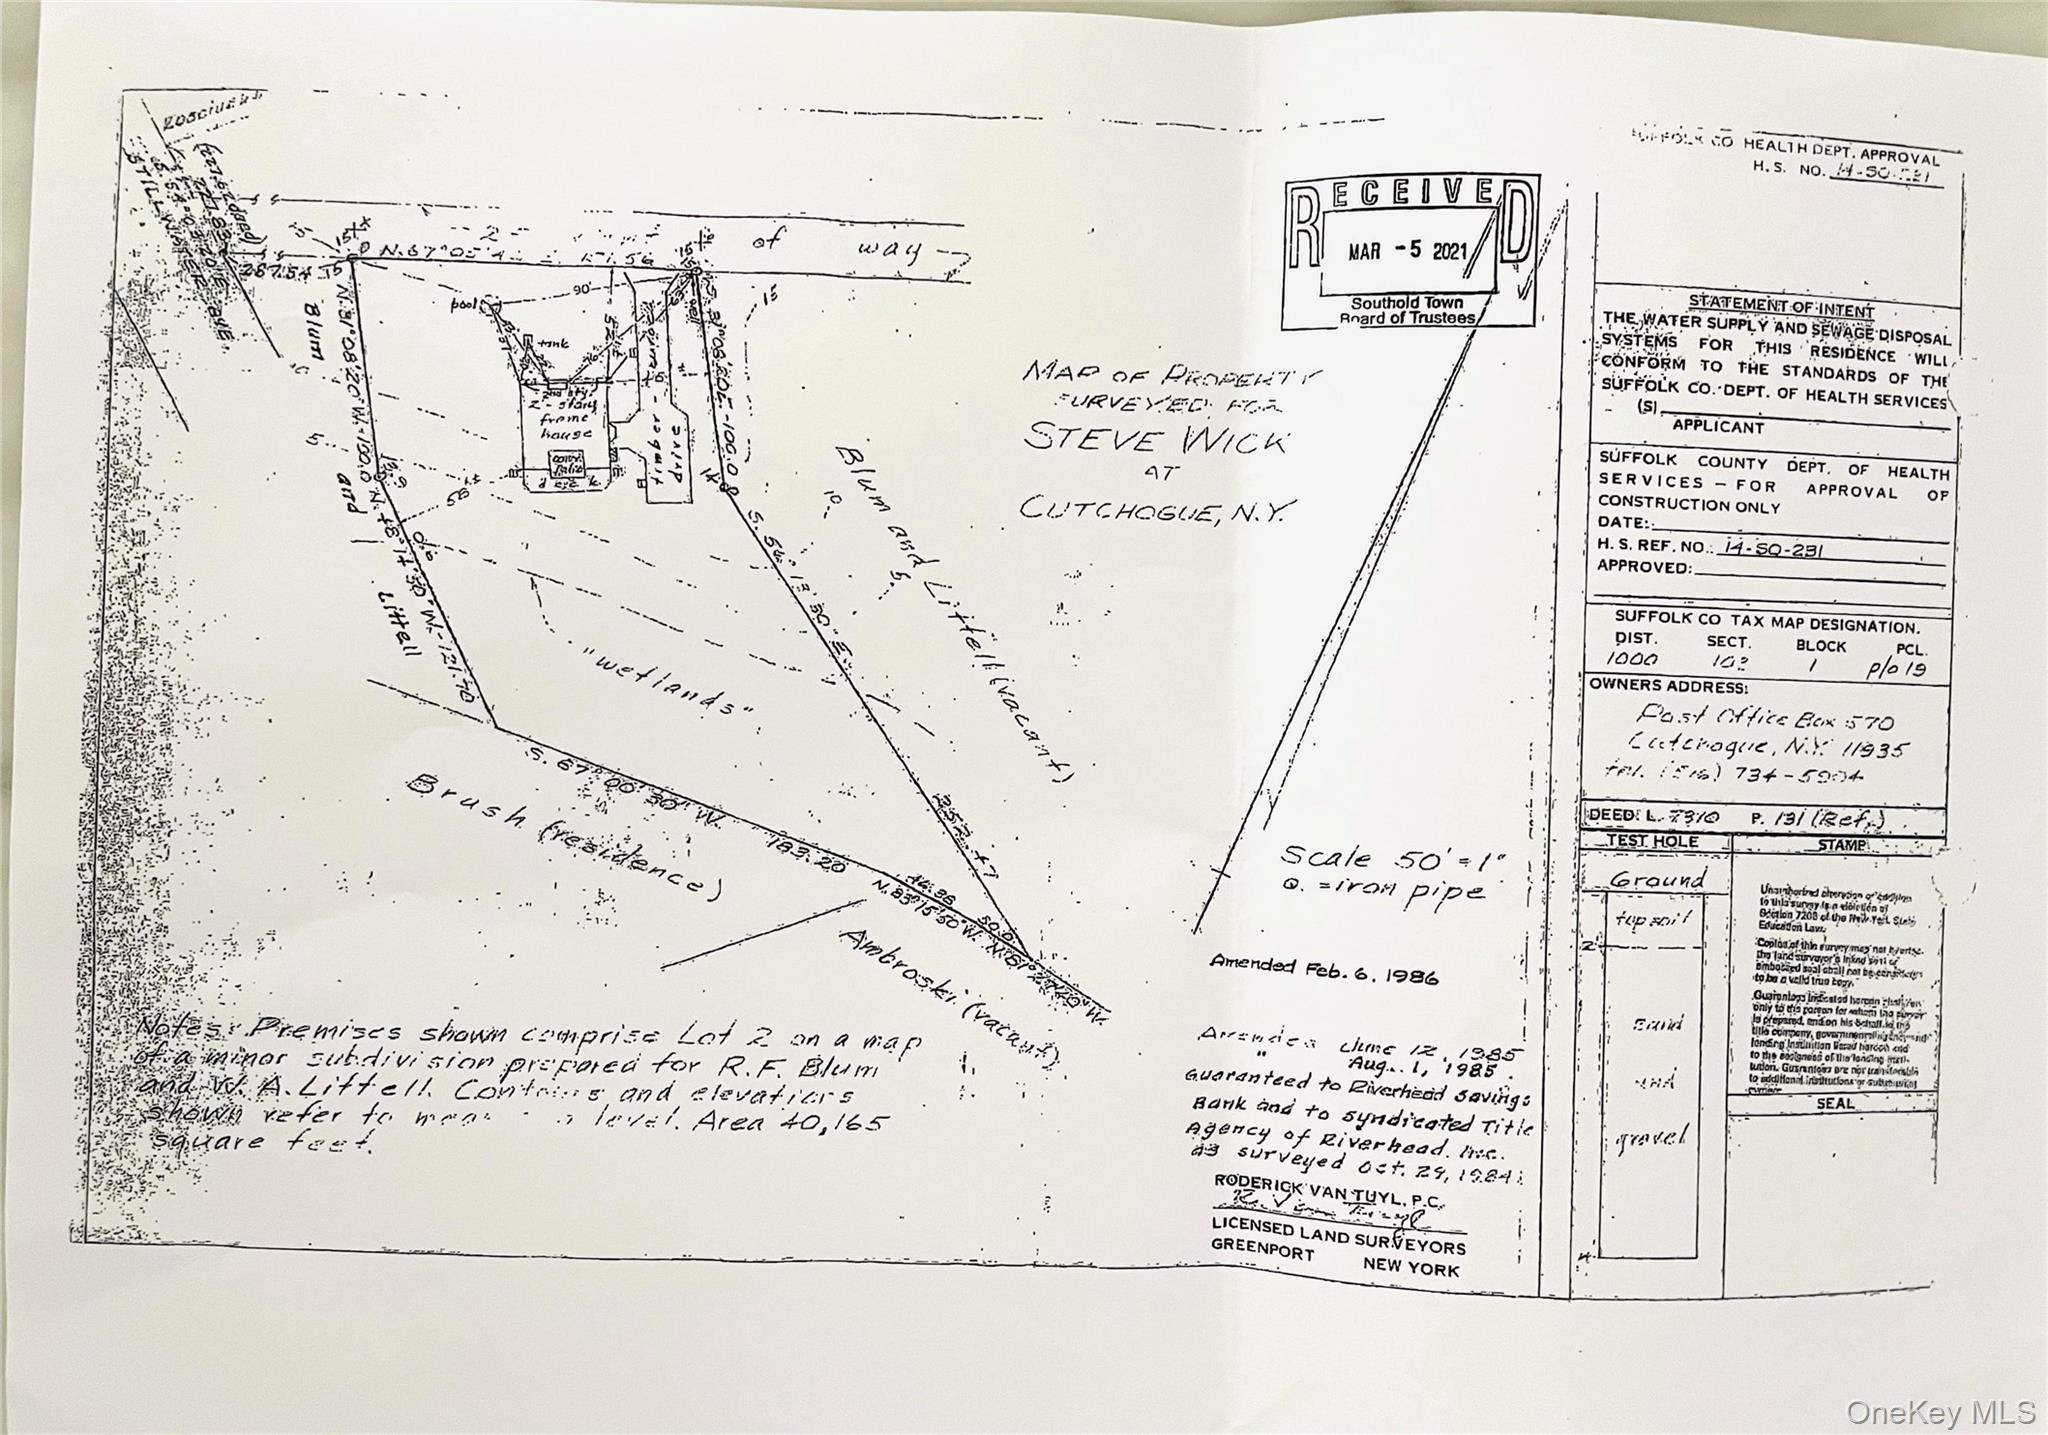 of way
287.54
N. 67° 05' 4
90'
pool
tank
2nd sty.
2-story
frame
house
deck
timber
drive
15
10
5
Blum
and
Littell
N. 31° 08' 20" W. - 100.0
N. 48° 14' 30" W. - 121.70
S. 31° 08' 20" E. - 100.0
Blum and Littell (vacant)
"wetlands"
S. 67° 00' 30" W.
183.20
Brush (residence)
N. 83° 15' 50" W.
50.0
Ambroski (vacant)
Notes: Premises shown comprise Lot 2 on a map
of a minor subdivision prepared for R.F. Blum
and W. A. Littell. Contours and elevations
shown refer to level. Area 40,165
square feet.
MAP OF PROPERTY
SURVEYED FOR
STEVE WICK
AT
CUTCHOGUE, N.Y.
RECEIVED
MAR - 5 2021
Southold Town
Board of Trustees
Scale 50' = 1"
O. = iron pipe
Amended Feb. 6, 1986
Amended June 12, 1985
" Aug. 1, 1985
Guaranteed to Riverhead Savings
Bank and to Syndicated Title
Agency of Riverhead. Inc.
as surveyed Oct. 29, 1984
RODERICK VAN TUYL, P.C.
LICENSED LAND SURVEYORS
GREENPORT NEW YORK
SUFFOLK CO HEALTH DEPT. APPROVAL
H. S. NO. 14-SO-231
STATEMENT OF INTENT
THE WATER SUPPLY AND SEWAGE DISPOSAL
SYSTEMS FOR THIS RESIDENCE WILL
CONFORM TO THE STANDARDS OF THE
SUFFOLK CO. DEPT. OF HEALTH SERVICES
(S)
APPLICANT
SUFFOLK COUNTY DEPT. OF HEALTH
SERVICES – FOR APPROVAL OF
CONSTRUCTION ONLY
DATE:
H. S. REF. NO.: 14-SO-231
APPROVED:
SUFFOLK CO TAX MAP DESIGNATION.
DIST. SECT. BLOCK PCL.
1000 102 1 p/o 19
OWNERS ADDRESS:
Post Office Box 570
Cutchogue, N.Y. 11935
tel. (516) 734-5004
DEED: L. 7310 P. 131 (Ref.)
TEST HOLE STAMP
Ground
topsoil
2'
sand
and
gravel
Unauthorized alteration or addition
to this survey is a violation of
Section 7209 of the New York State
Education Law.
Copies of this survey map not bearing
the land surveyor's inked seal or
embossed seal shall not be considered
to be a valid true copy.
Guarantees indicated hereon shall run
only to the person for whom the survey
is prepared, and on his behalf to the
title company, governmental agency and
lending institution listed hereon and
to the assignees of the lending insti-
tution. Guarantees are not transferable
to additional institutions or subsequent
owners.
SEAL
OneKey MLS